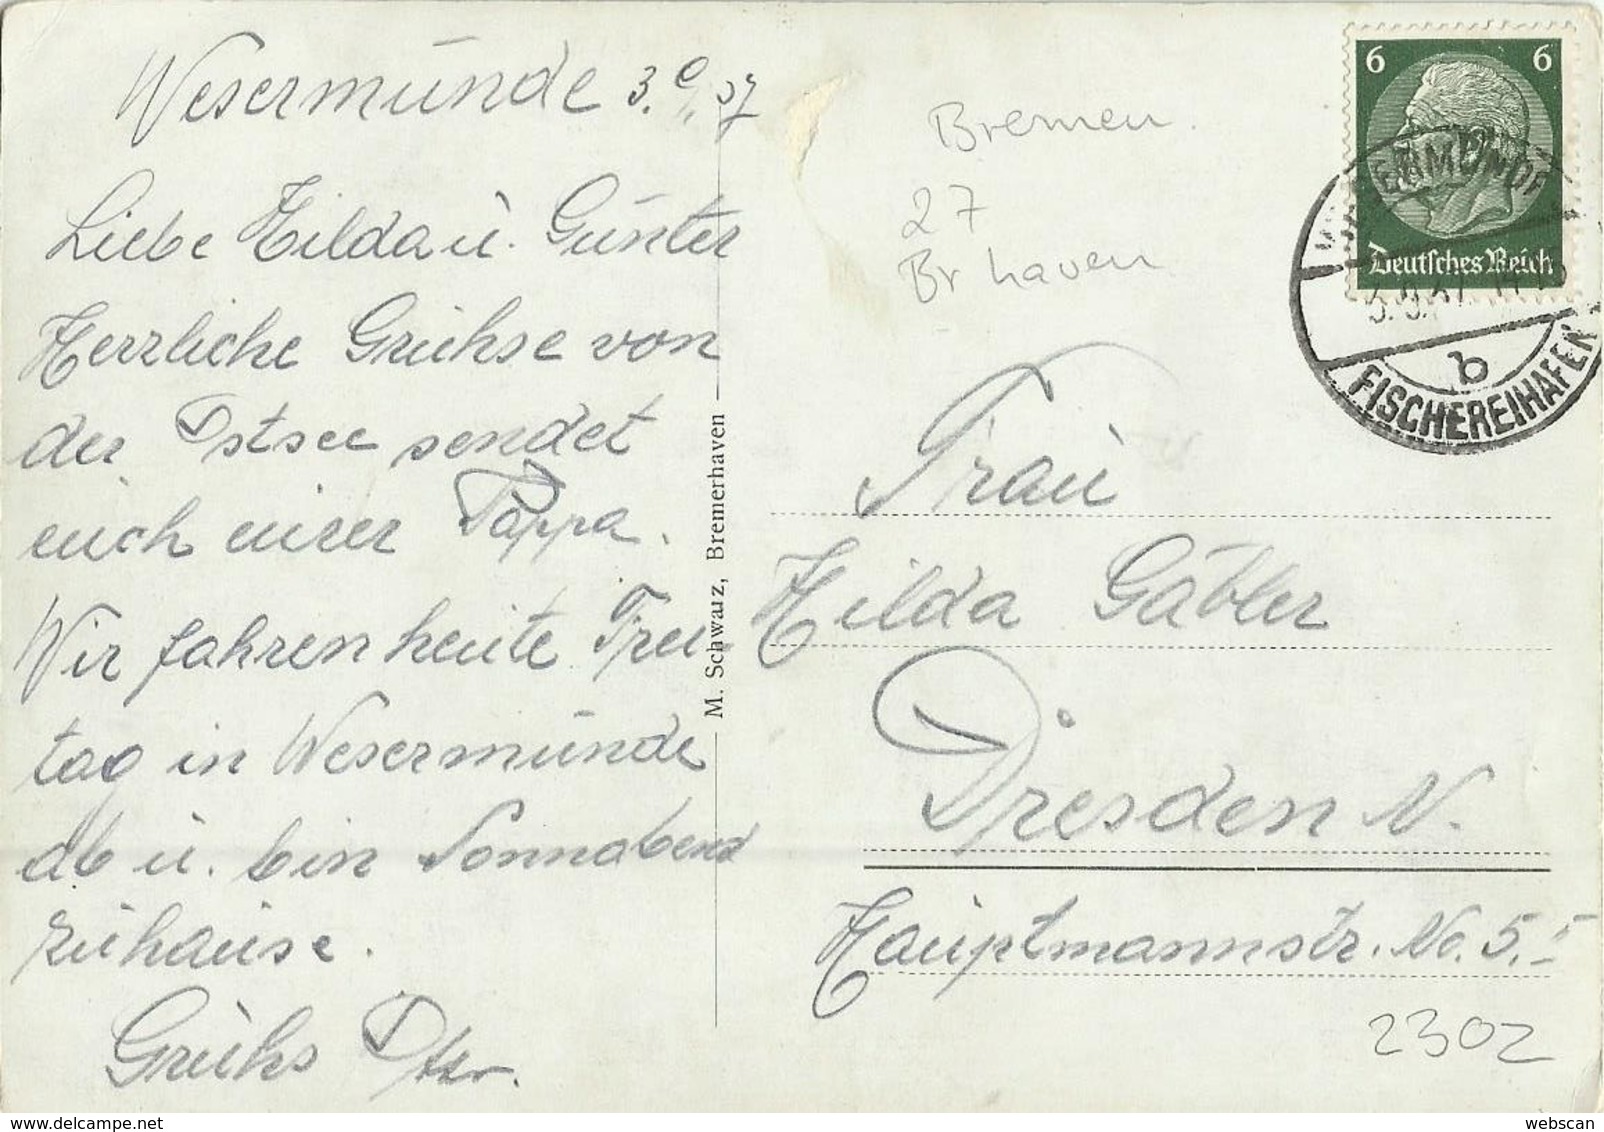 Wesermünde 3.9.37
Liebe Hilda u. Günter
Herrliche Grühse von
der Ostsee sendet
euch eurer Pappa.
Wir fahren heute Frei-
tag in Wesermünde
ab u. bin Sonnabend
zuhause.
Grühs
M. Schwarz, Bremerhaven
Bremen.
27
Br haven
6 6
Deutsches Reich
WESERMÜNDE
3.9.37
b
FISCHEREIHAFEN
Frau
Hilda Gäbler
Dresden N.
Hauptmannstr. No. 5.
2302
webscan
webscan